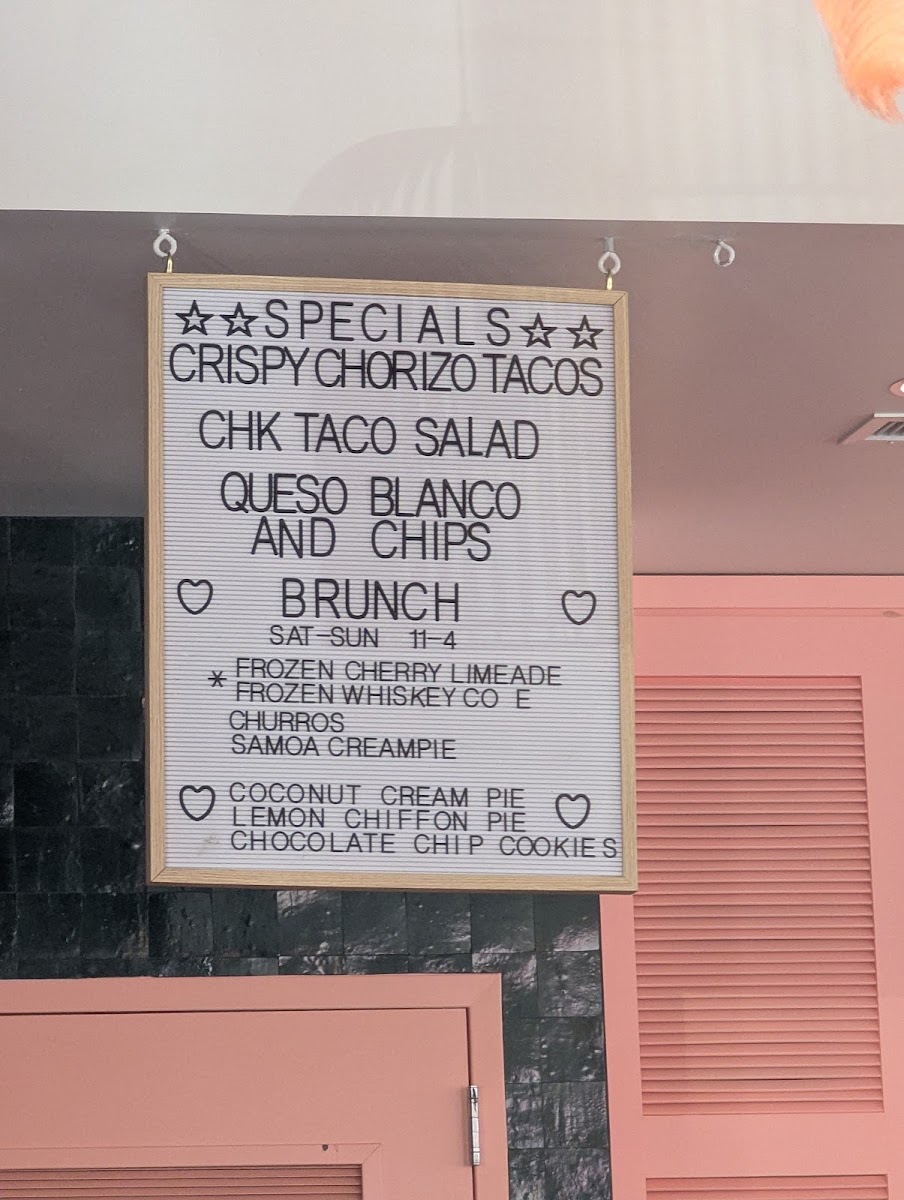 ☆☆SPECIALS☆☆
CRISPY CHORIZO TACOS
CHK TACO SALAD
QUESO BLANCO
AND CHIPS
♡ BRUNCH ♡
SAT-SUN 11-4
* FROZEN CHERRY LIMEADE
FROZEN WHISKEY CO E
CHURROS
SAMOA CREAMPIE
♡ COCONUT CREAM PIE ♡
LEMON CHIFFON PIE
CHOCOLATE CHIP COOKIES